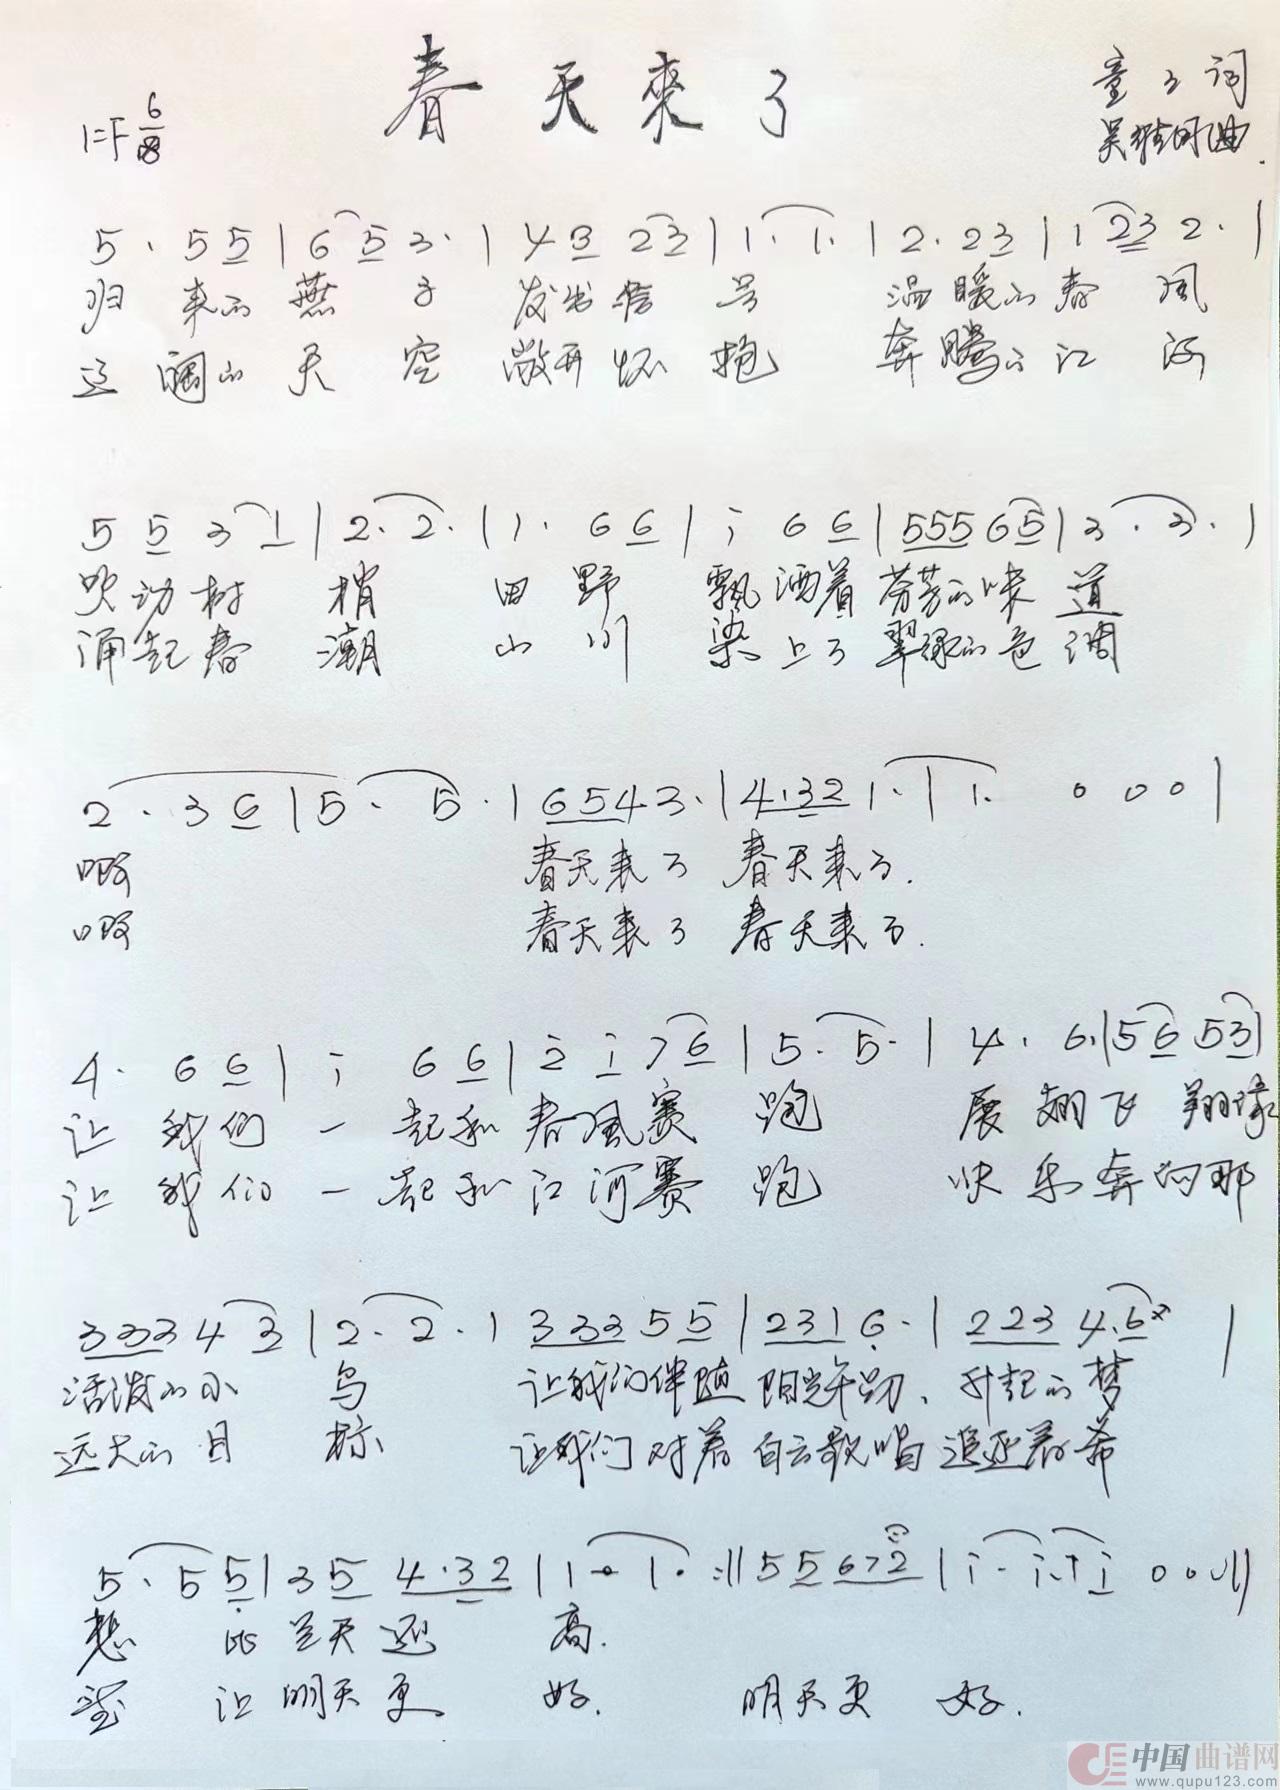 春天來了
1=F 6/8
童 詞
吴 曲.
5. 5 5 | 6 5 3. | 4 3 2 3 | 1. 1. | 2. 2 3 | 1 2 3 2. |
归来的燕子 发出信号 温暖的春风
辽阔的天空 敞开怀抱 奔腾的江河
5 5 3 1 | 2. 2. | 1. 6 6 | i 6 6 | 5 5 5 6 5 | 3. 3. |
吹动树梢 田野飘洒着芬芳的味道
涌起春潮 山川染上了翠绿的色调
2. 3 6 | 5. 5. | 6 5 4 3. | 4. 3 2 1. | 1. 0 0 0 |
啊 春天来了 春天来了.
啊 春天来了 春天来了.
4. 6 6 | i 6 6 | 2 i 7 6 | 5. 5. | 4. 6. | 5 6 5 3 |
让我们一起和春风赛跑 展翅飞翔像
让我们一起和江河赛跑 快乐奔向那
3 3 3 4 3 | 2. 2. | 3 3 3 5 5 | 2 3 1 6. | 2 2 3 4. 6 |
活泼的小鸟 让我们伴随阳光 , 升起的梦
远大的目标 让我们对着白云歌唱 追逐着希
5. 5 5 | 3 5 4. 3 2 | 1. 1. :|| 5 5 6 7 2 | i. i. i 0 0 0 ||
想 比蓝天还高.
望 让明天更好. 明天更好.
中国曲谱网
www.qupu123.com